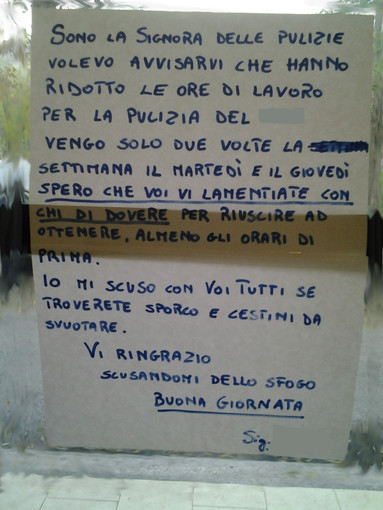 SONO LA SIGNORA DELLE PULIZIE
VOLEVO AVVISARVI CHE HANNO
RIDOTTO LE ORE DI LAVORO
PER LA PULIZIA DEL
VENGO SOLO DUE VOLTE LA
SETTIMANA IL MARTEDÌ E IL GIOVEDÌ
SPERO CHE VOI VI LAMENTIATE CON
CHI DI DOVERE PER RIUSCIRE AD
OTTENERE, ALMENO GLI ORARI DI
PRIMA.
IO MI SCUSO CON VOI TUTTI SE
TROVERETE SPORCO E CESTINI DA
SVUOTARE.
VI RINGRAZIO
SCUSANDOMI DELLO SFOGO
BUONA GIORNATA
Sig.